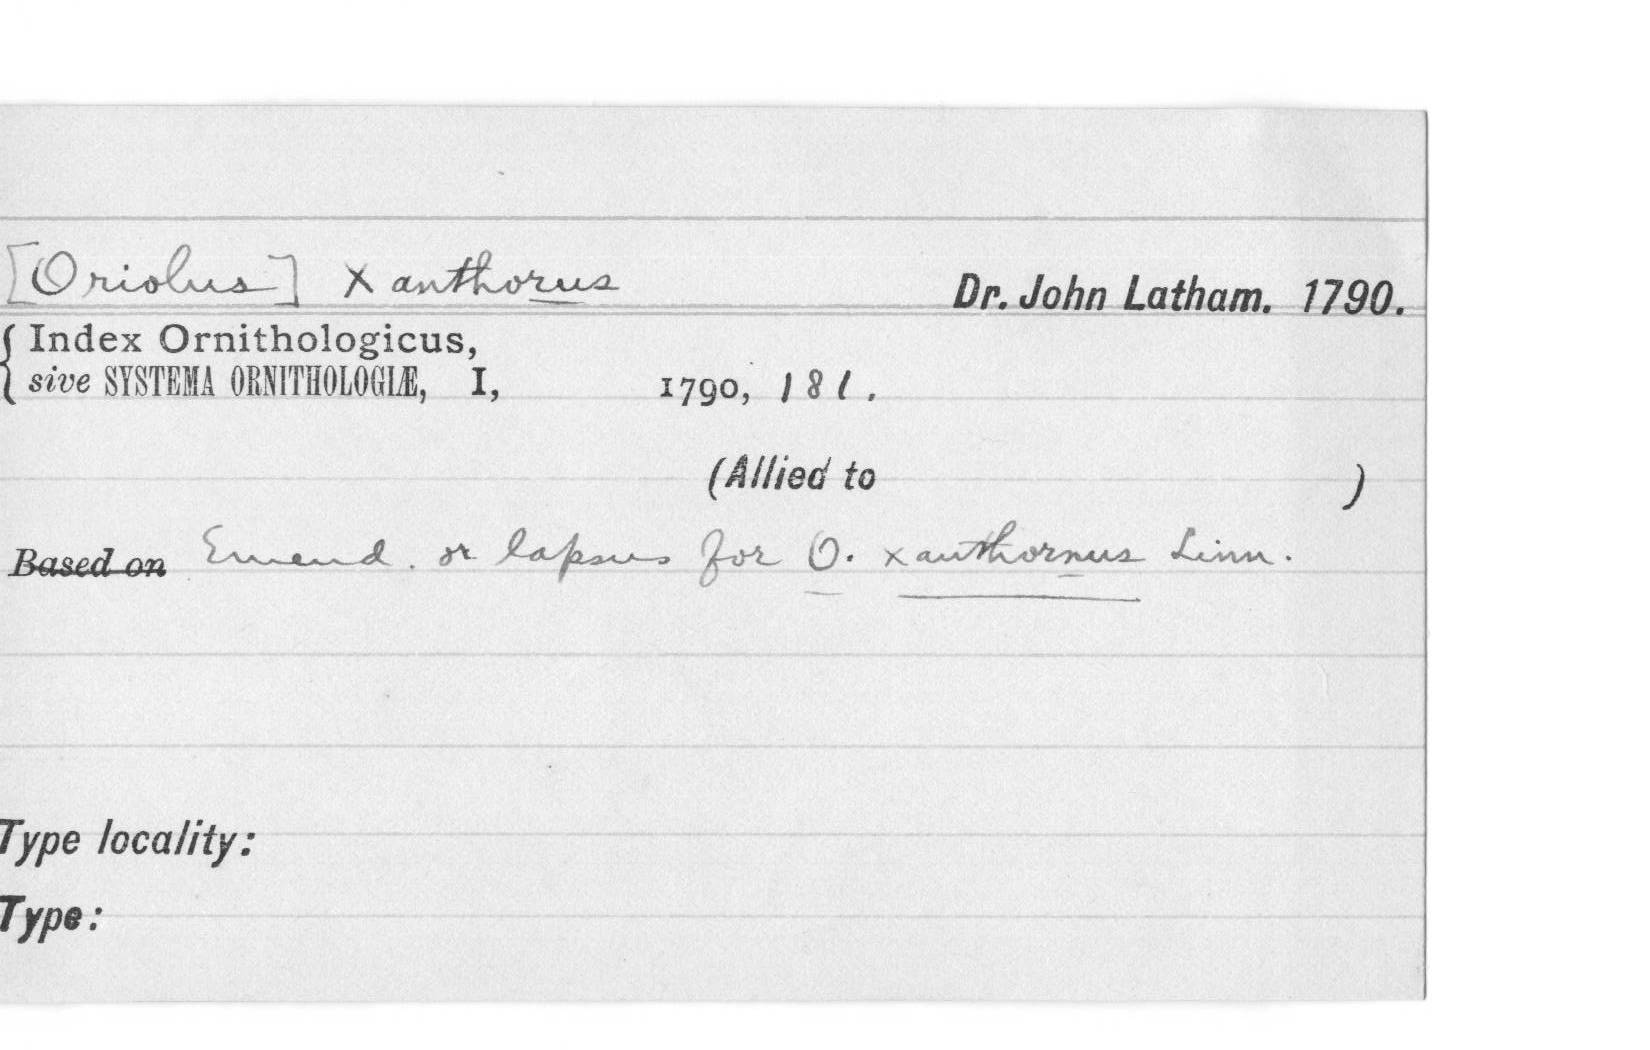 [Oriolus] Xanthorus Dr. John Latham. 1790.
Index Ornithologicus,
sive SYSTEMA ORNITHOLOGIÆ, I, 1790, 181.
(Allied to )
Based on Emend. or lapsus for O. xanthornus Linn.
Type locality:
Type: